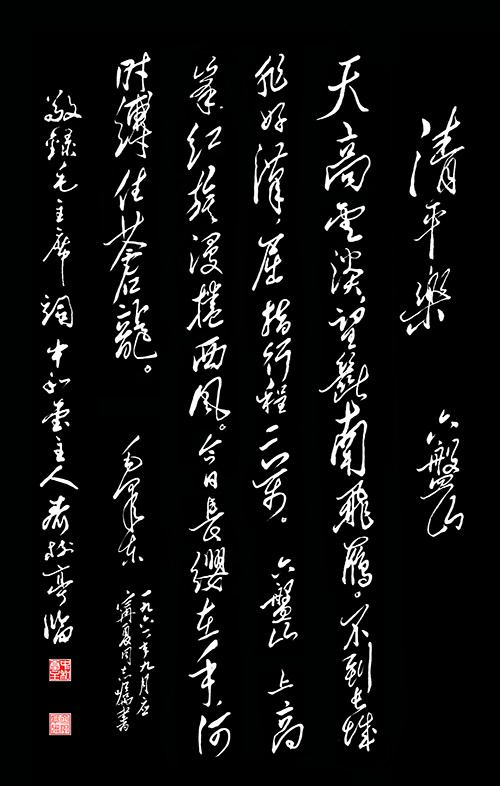 清平樂 六盤山
天高雲淡,望斷南飛雁。不到長城
非好漢,屈指行程二万。六盤山上高
峯红旗漫捲西风。今日長纓在手,何
时縛住苍龍。 毛澤东
一九六一年九月应
寧夏同志嘱書
敬錄毛主席詞 中和堂主人 樹亭臨